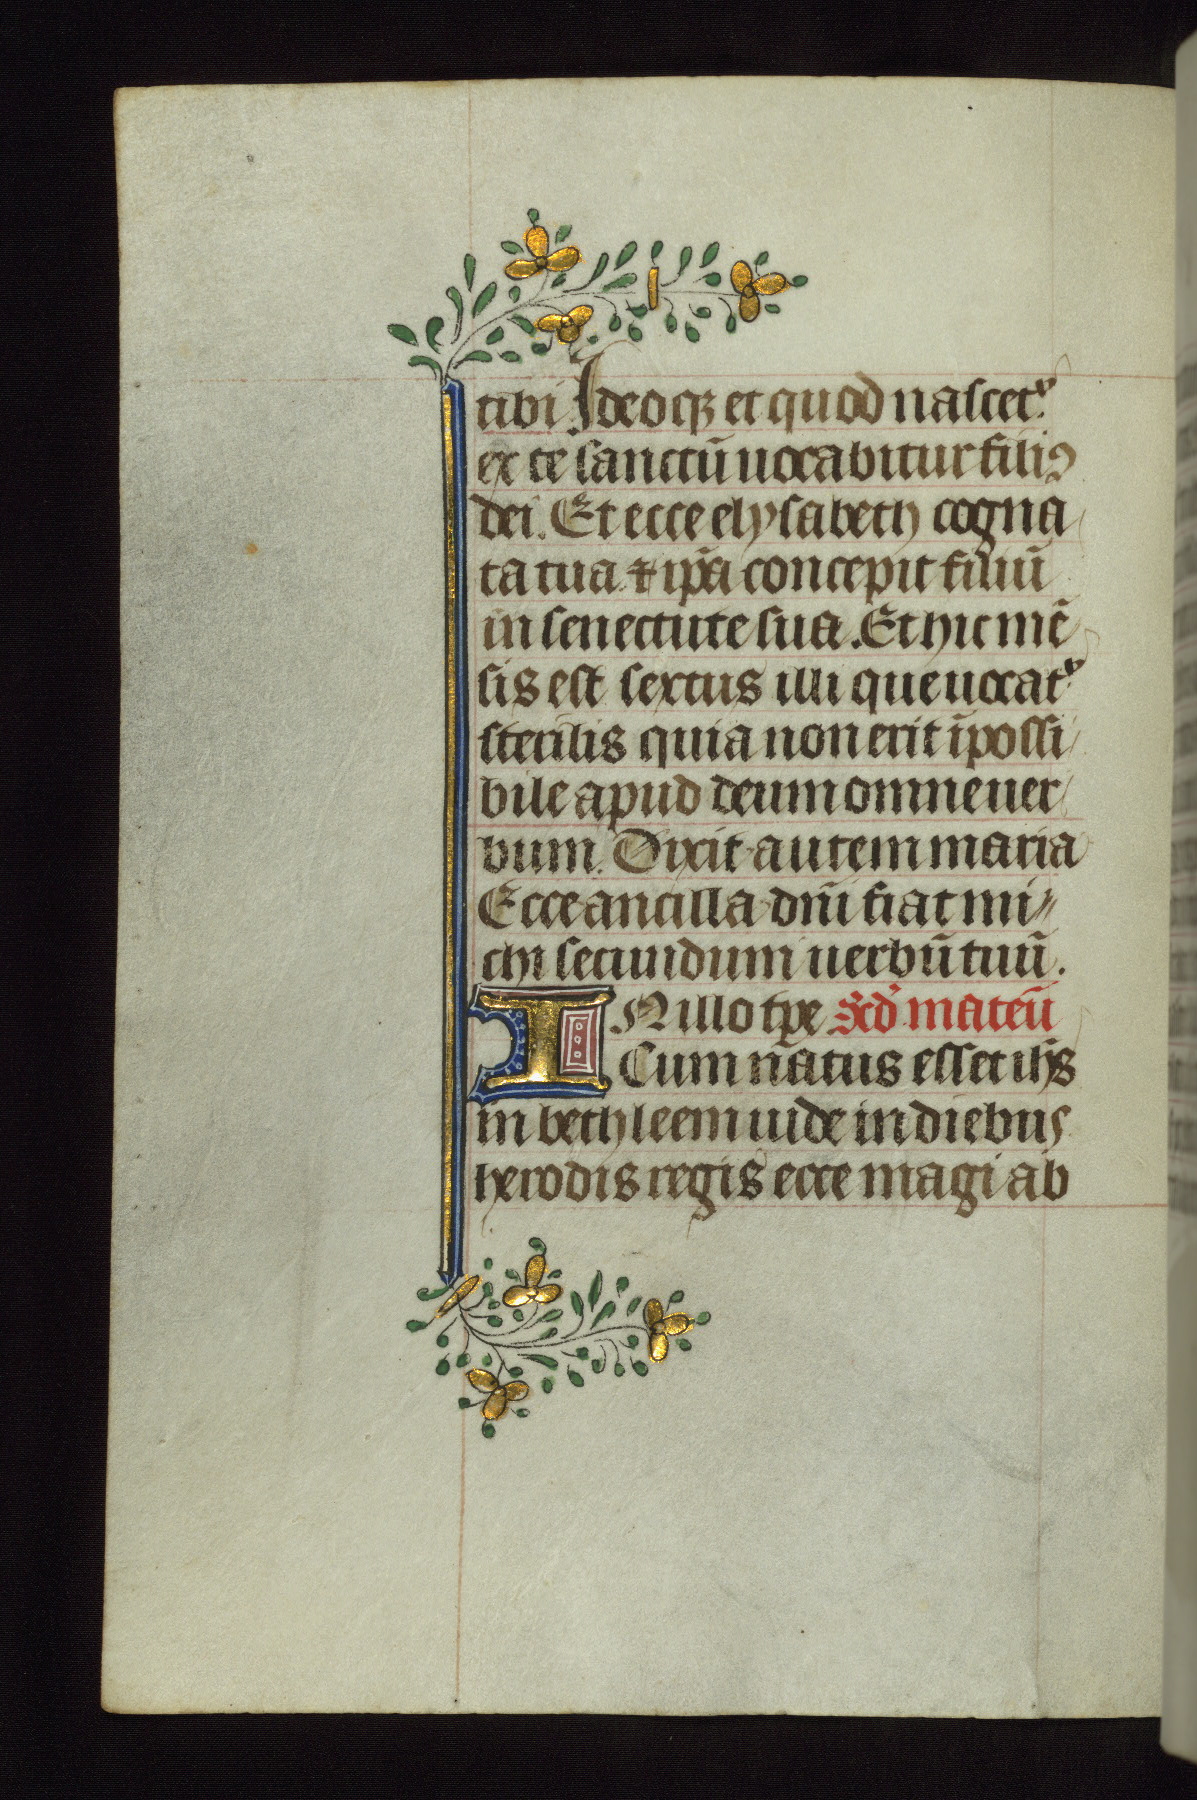 tibi Ideoqꝫ et quod nascet᷑
ex te sanctū uocabitur filiꝯ
dei. Et ecce elysabeth cogna
ta tua ⁊ ip̄a concepit filiū
in senectute sua. Et hic mē
sis est sextus illi que uocat᷑
sterilis quia non erit īpossi
bile apud deum omne uer
bum. Dixit autem maria
Ecce ancilla dn̄i fiat mi
chi secundum uerbū tuū.
IN illo tp̄e Scd̄ mateū
Cum natus esset ih̄s
in bethleem iude in diebus
herodis regis ecce magi ab